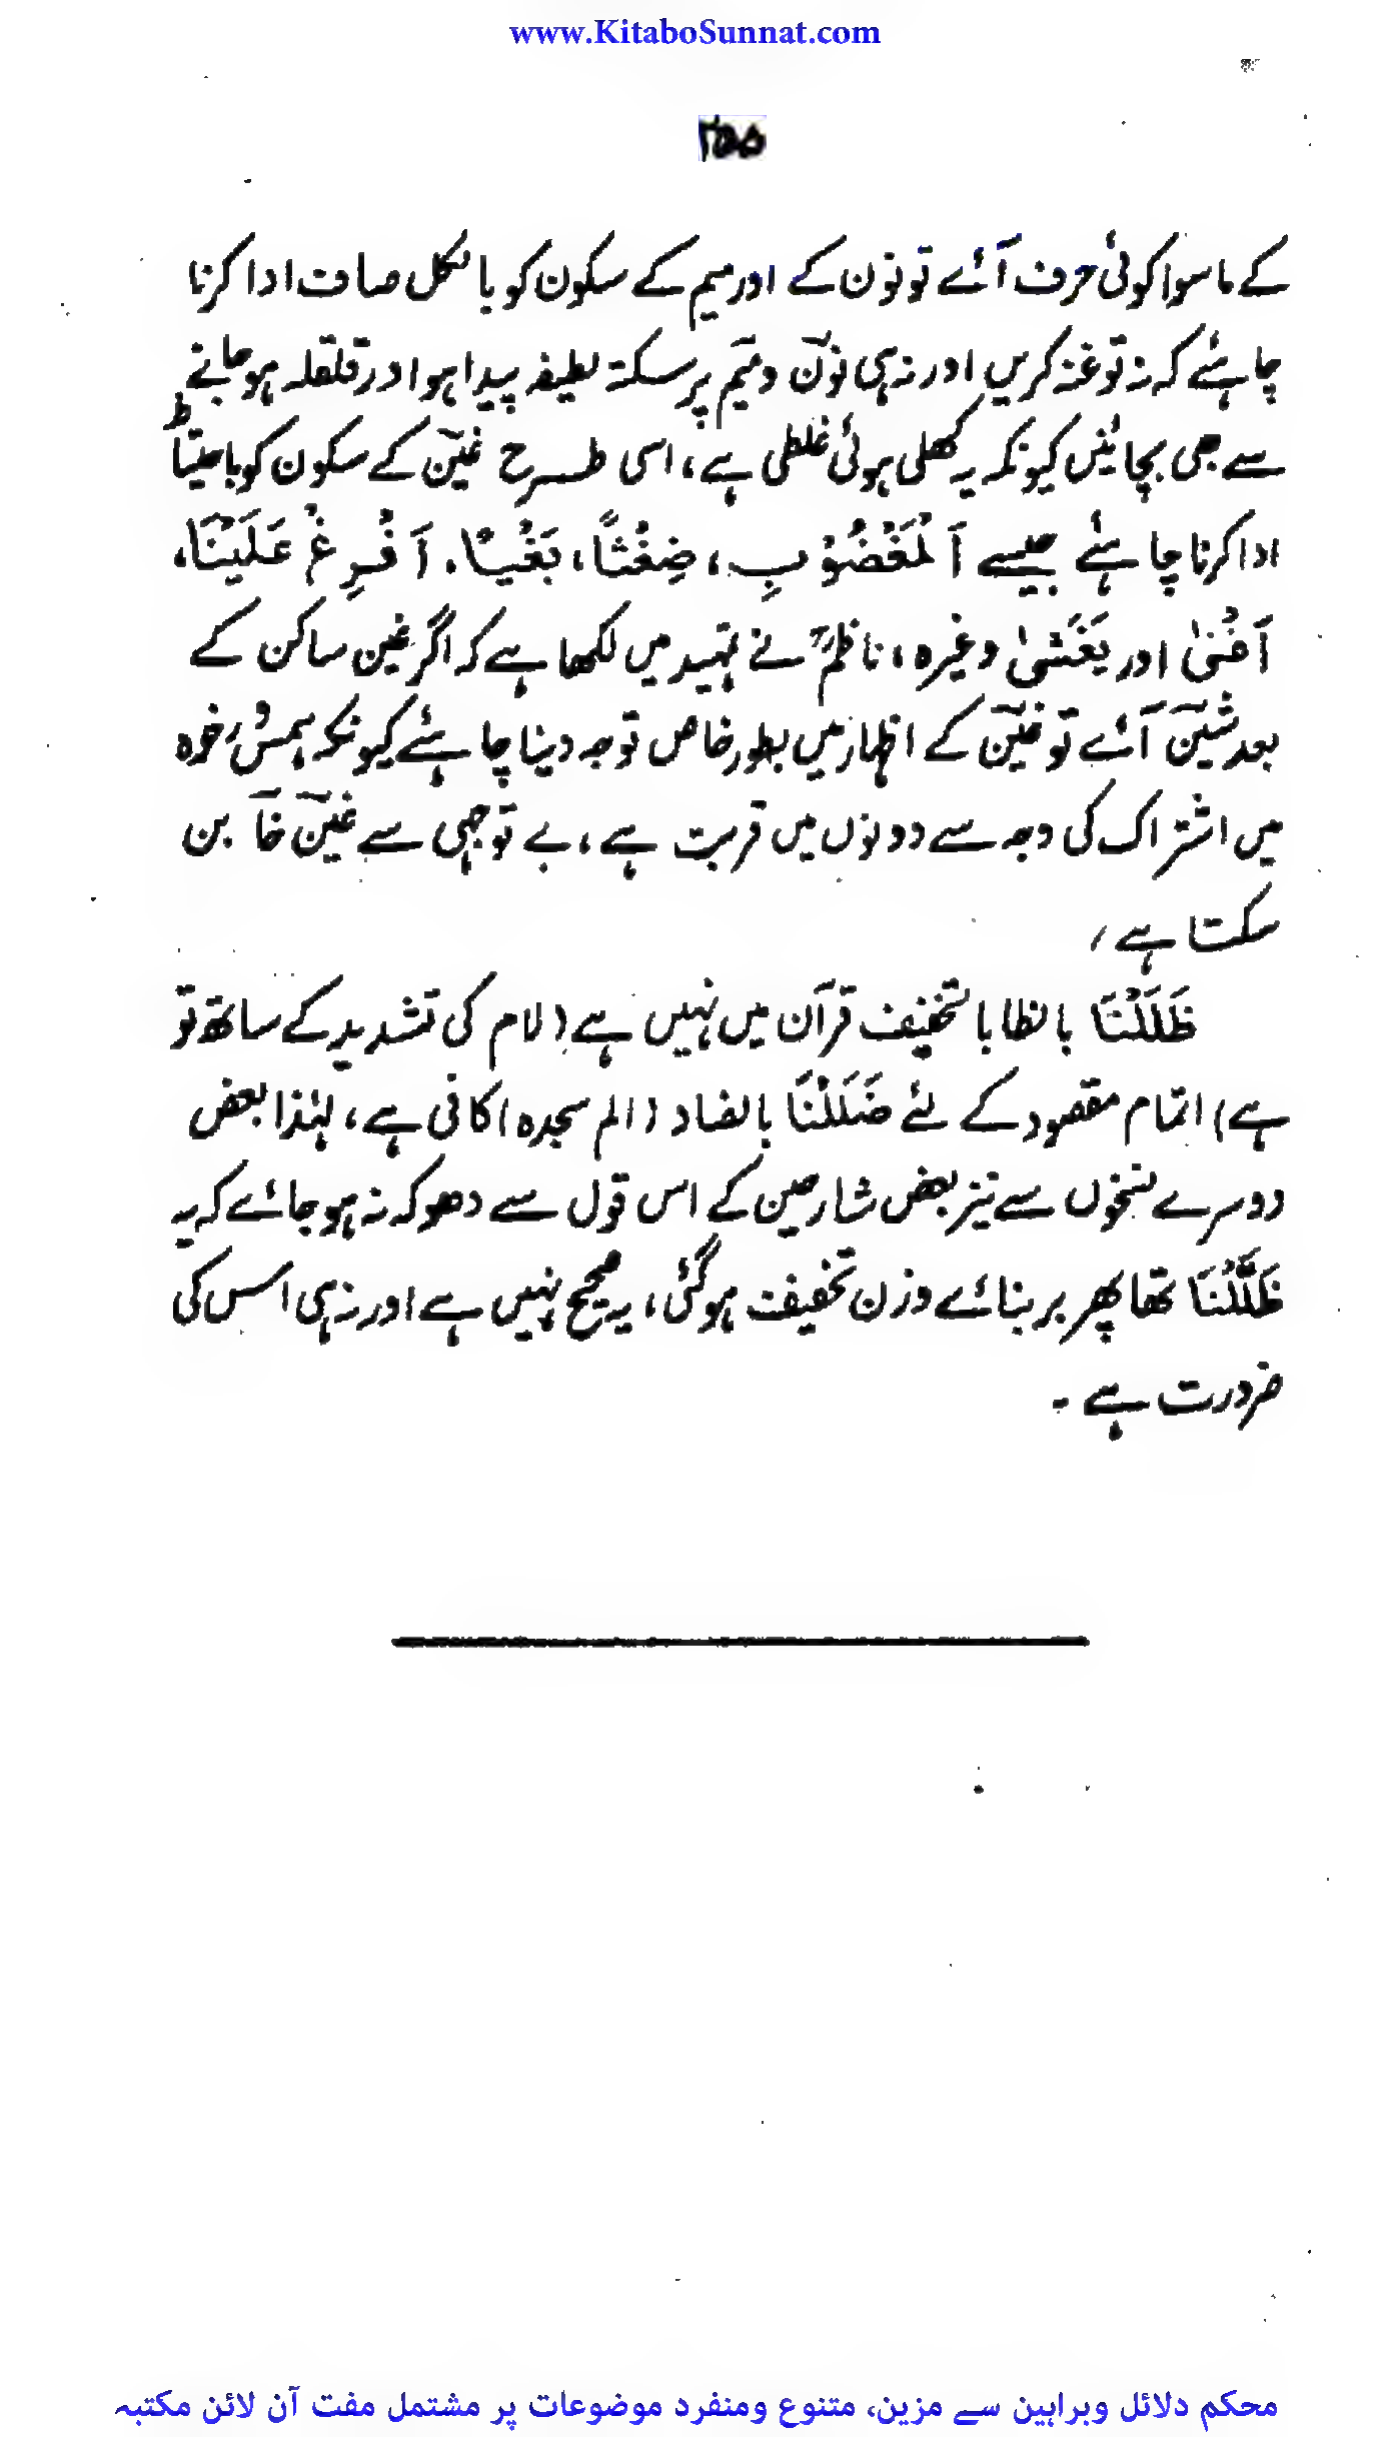 www.KitaboSunnat.com
۲۵۵
کے ماسوا کوئی حرف آئے تو نون کے اور میم کے سکون کو بالکل صاف ادا کرنا
چاہئے کہ نہ تو غنہ کریں اور نہ ہی نونؔ و میمؔ پر سکتہ لطیفہ پیدا ہو اور قلقلہ ہو جانے
سے بھی بچائیں کیونکہ یہ کھلی ہوئی غلطی ہے، اسی طرح غینؔ کے سکون کو با حتیاط
ادا کرنا چاہئے جیسے اَلْمَغْضُوْبِ، ضِغْثًا، بَغْیًا، اَفْرِغْ عَلَیْنَا،
اَغْنٰی اور یَغْشٰی وغیرہ، ناظمؒ نے تمہید میں لکھا ہے کہ اگر غین ساکن کے
بعد شینؔ آئے تو غینؔ کے اظہار میں بطور خاص توجہ دینا چاہئے کیونکہ ہمسؔ، رخوہ
میں اشتراک کی وجہ سے دونوں میں قربت ہے، بے توجہی سے غینؔ خاؔ بن
سکتا ہے،
ظَلَلْنَا بالظا با لتخفیف قرآن میں نہیں ہے (لام کی تشدید کے ساتھ تو
ہے) اتمام مقصود کے لئے ضَلَلْنَا بالضاد (الم سجدہ) کافی ہے، لہٰذا بعض
دوسرے نسخوں سے نیز بعض شارحین کے اس قول سے دھوکہ نہ ہو جائے کہ یہ
ظَلَّلْنَا تھا پھر بر بنائے وزن تخفیف ہوگئی، یہ صحیح نہیں ہے اور نہ ہی اس کی
ضرورت ہے ۔
محکم دلائل وبراہین سے مزین، متنوع ومنفرد موضوعات پر مشتمل مفت آن لائن مکتبہ